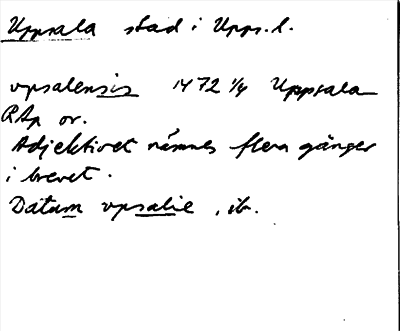 Uppsala stad i Upps. l.
vpsalensis 1472 1/4 Uppsala
RAp or.
Adjektivet nämnes flera gånger
i brevet.
Datum vpsalie, ib.